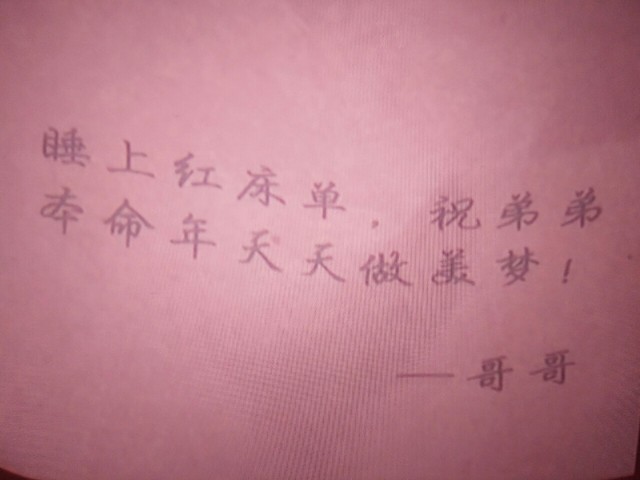 睡上红床单，祝弟弟
本命年天天做美梦！
——哥哥